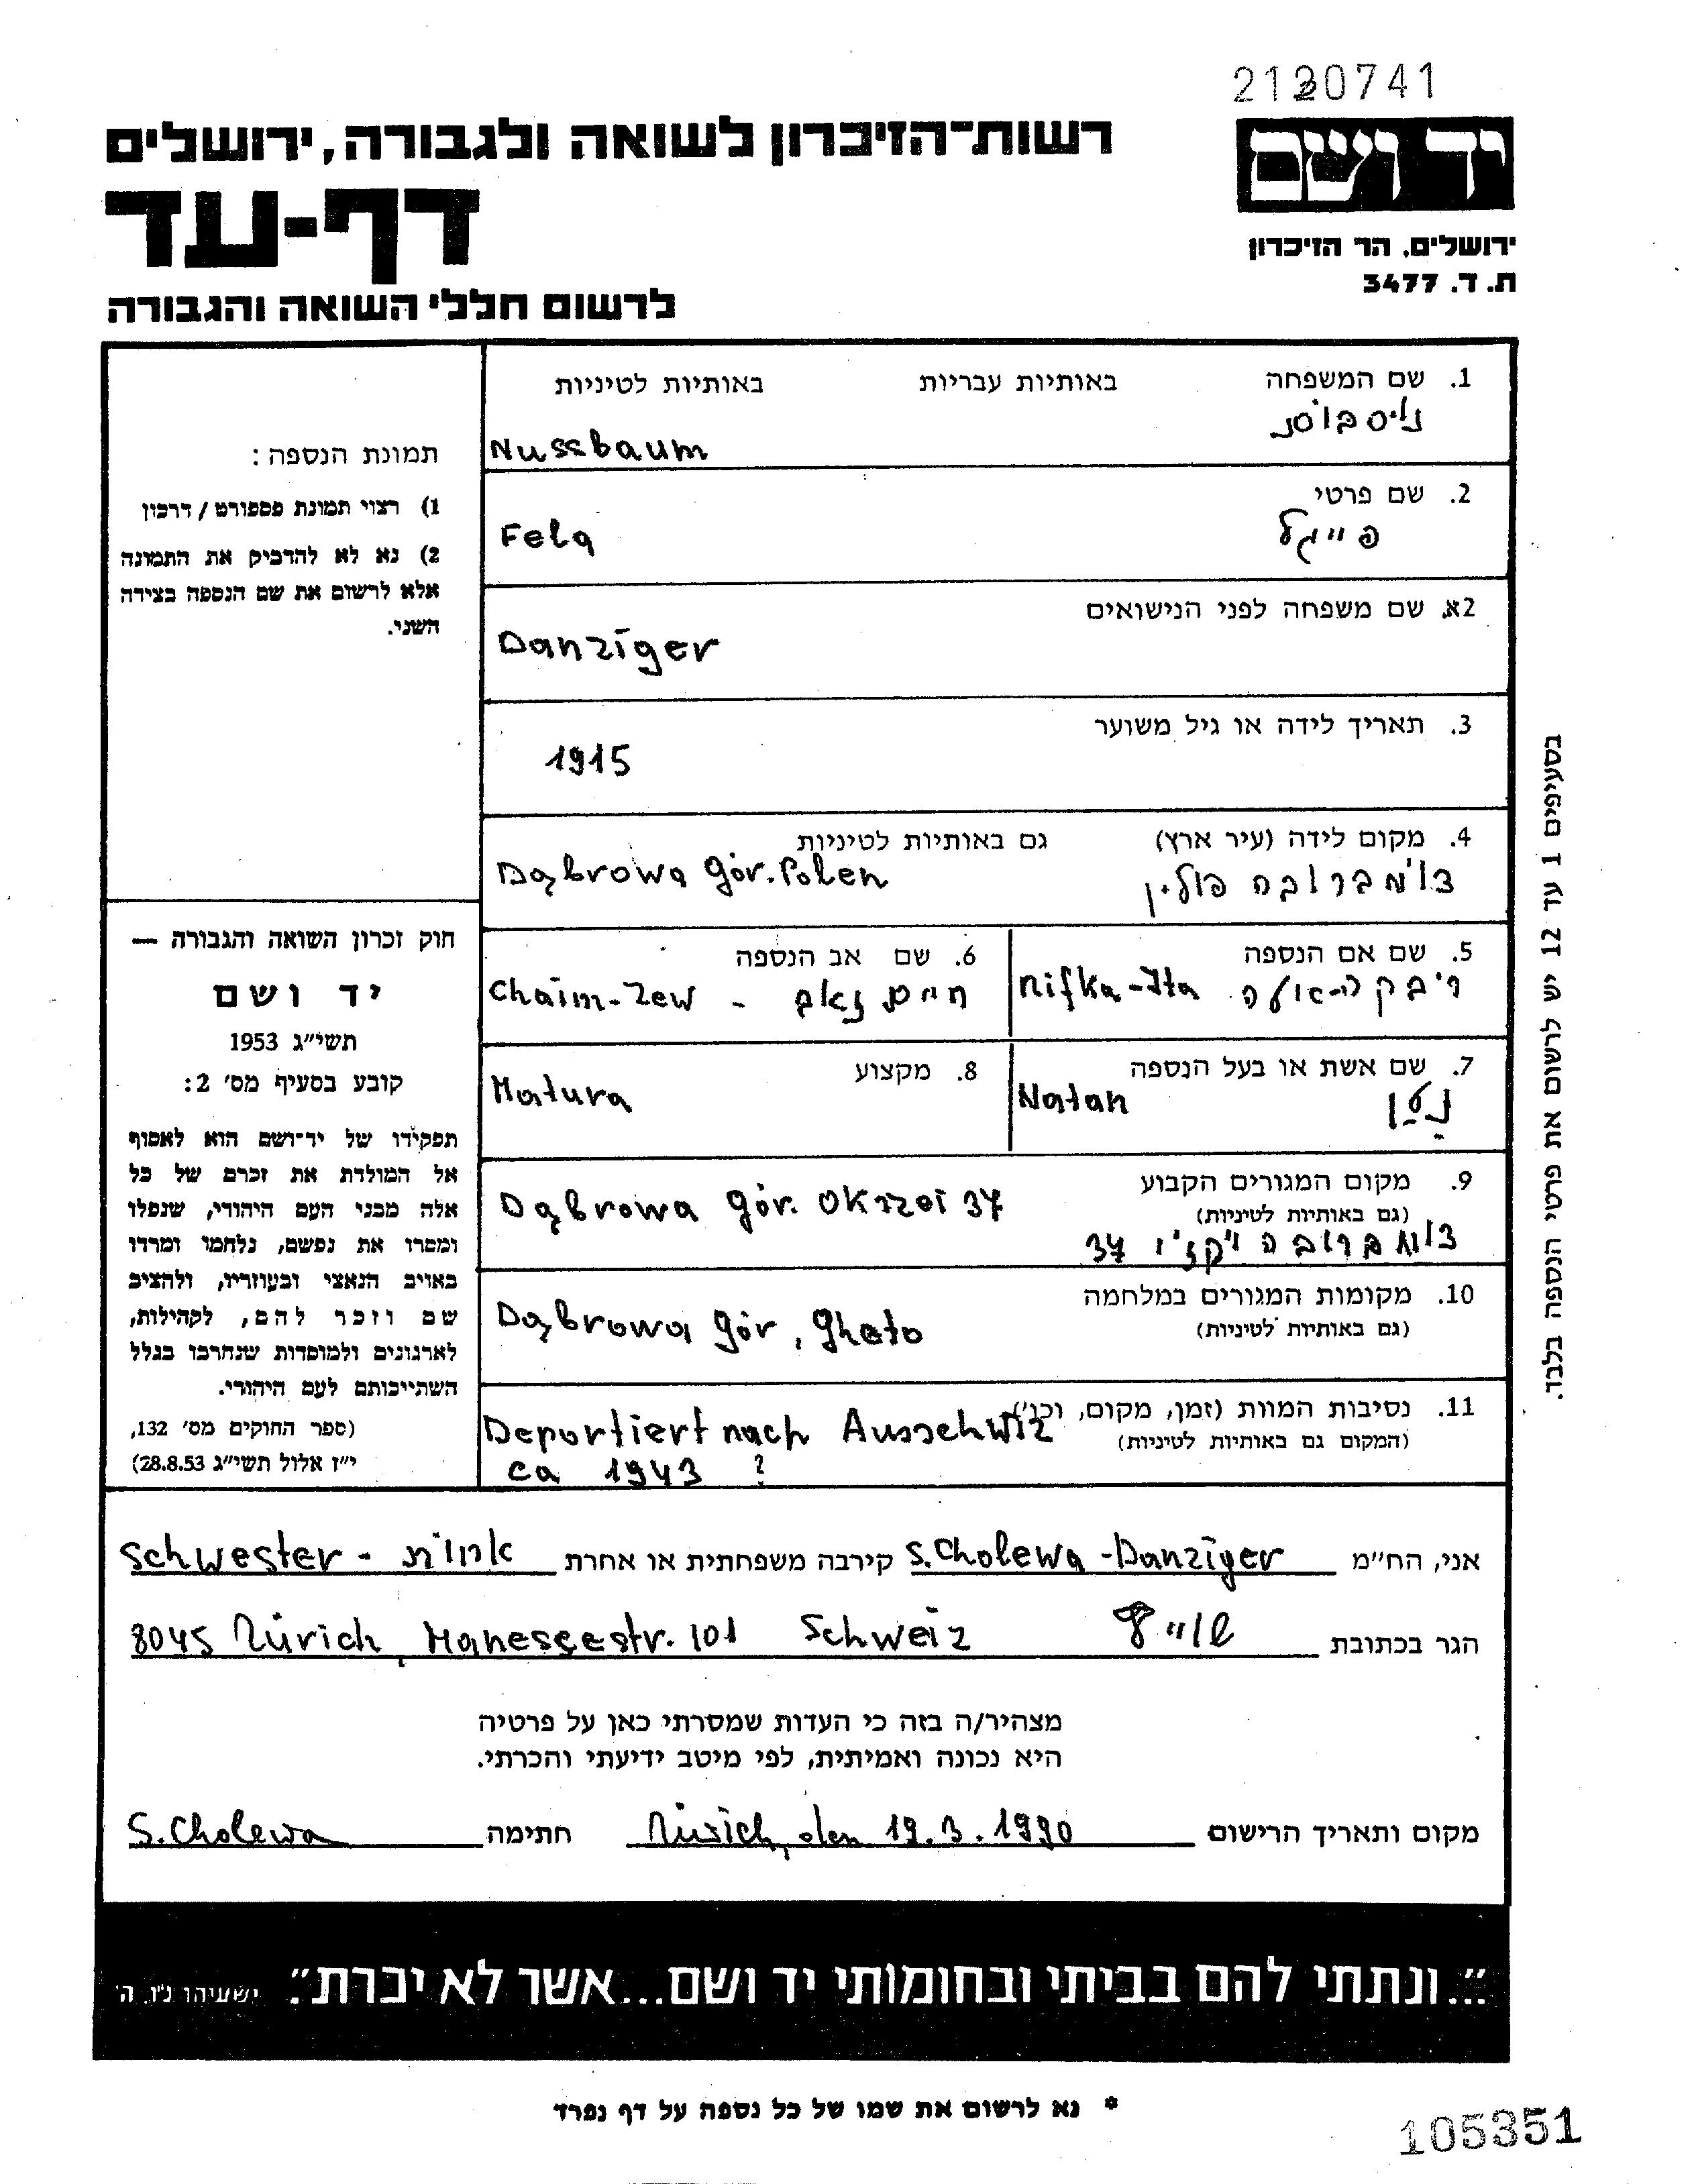 2120741
רשות־הזיכרון לשואה ולגבורה, ירושלים
יד ושם
דף-עד
ירושלים, הר הזיכרון
ת. ד. 3477
לרשום חללי השואה והגבורה
1. שם המשפחה באותיות עבריות באותיות לטיניות
Nussbaum
2. שם פרטי
פייגל Fela
2א. שם משפחה לפני הנישואים
Danziger
3. תאריך לידה או גיל משוער
1915
4. מקום לידה (עיר ארץ) גם באותיות לטיניות
דומברובה פולין Dąbrowa Gór. Polen
5. שם אם הנספה
Rifka-Ita
6. שם אב הנספה
Chaim-Zew - חיים זאב
7. שם אשת או בעל הנספה
נטן Natan
8. מקצוע
Matura
9. מקום המגורים הקבוע
(גם באותיות לטיניות)
Dąbrowa Gór. Okrzei 37
דומברובה 37
10. מקומות המגורים במלחמה
(גם באותיות לטיניות)
Dąbrowa Gór, Gheto
11. נסיבות המוות (זמן, מקום, וכו')
(המקום גם באותיות לטיניות)
Deportiert nach Ausschwiz
ca 1943 ?
תמונת הנספה:
1) רצוי תמונת פספורט / דרכון
2) נא לא להדביק את התמונה
אלא לרשום את שם הנספה בצידה
השני.
חוק זכרון השואה והגבורה —
יד ושם
תשי״ג 1953
קובע בסעיף מס' 2:
תפקידו של יד־ושם הוא לאסוף
אל המולדת את זכרם של כל
אלה מבני העם היהודי, שנפלו
ומסרו את נפשם, נלחמו ומרדו
באויב הנאצי ובעוזריו, ולהציב
שם וזכר להם, לקהילות,
לארגונים ולמוסדות שנחרבו בגלל
השתייכותם לעם היהודי.
(ספר החוקים מס' 132,
י״ז אלול תשי״ג 28.8.53)
בסעיפים 1 עד 12 יש לרשום את פרטי הנספה בלבד.
אני, הח״מ S. Cholewa-Danziger קירבה משפחתית או אחרת אחות - Schwester
הגר בכתובת 8045 Zürich, Manessestr. 101 Schweiz שווייץ
מצהיר/ה בזה כי העדות שמסרתי כאן על פרטיה
היא נכונה ואמיתית, לפי מיטב ידיעתי והכרתי.
מקום ותאריך הרישום Zürich, den 19.3.1990 חתימה S. Cholewa
״...ונתתי להם בביתי ובחומותי יד ושם...אשר לא יכרת״. ישעיהו נ״ו, ה'
* נא לרשום את שמו של כל נספה על דף נפרד
105351